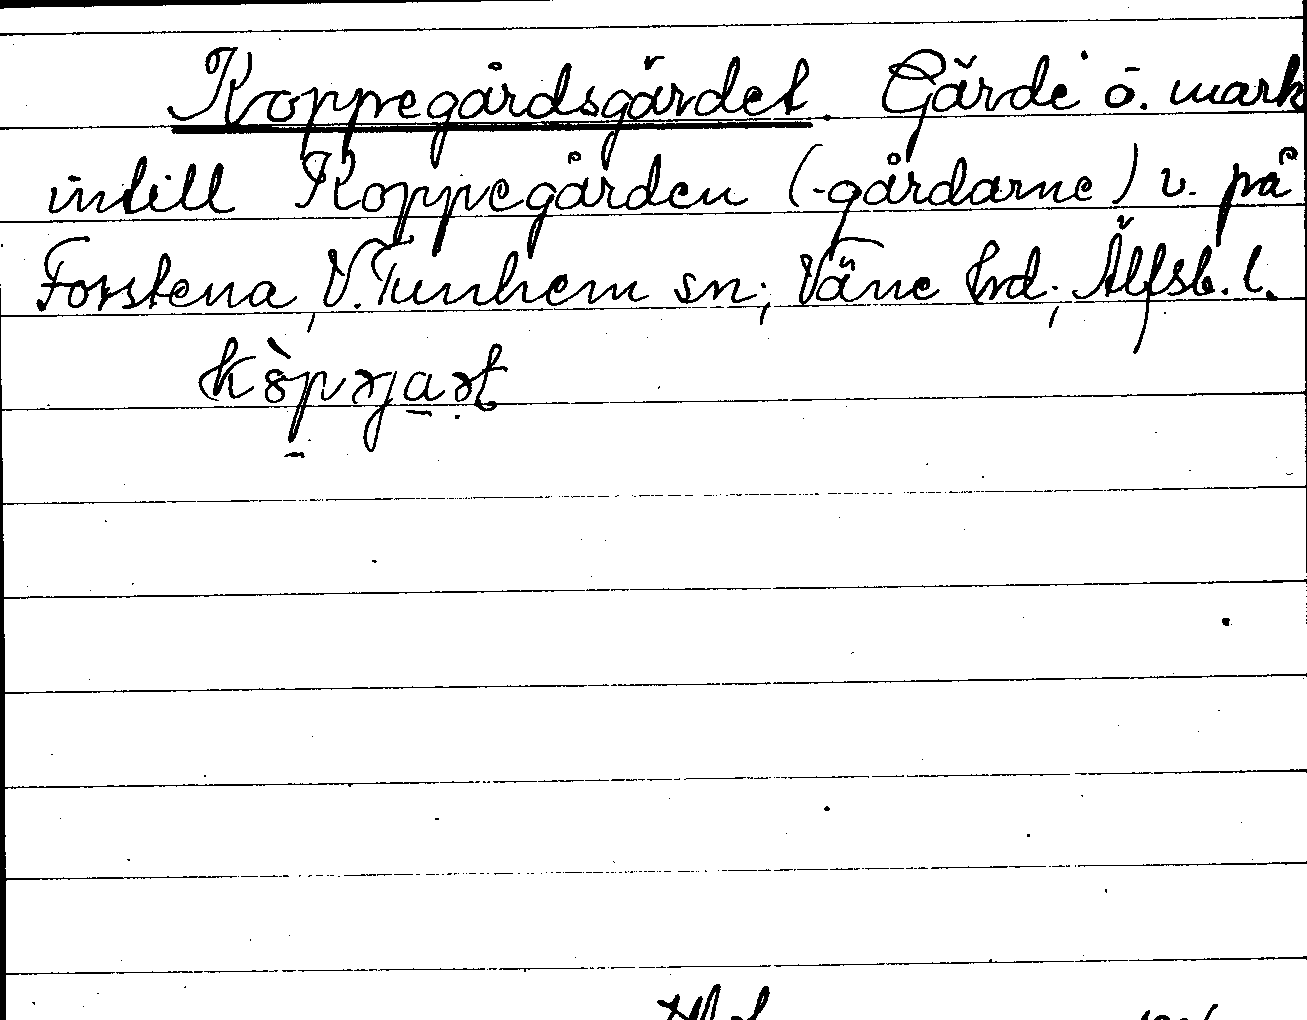 Koppegårdsgärdet. Gärde ö. mark
intill Koppegården (-gårdarne) v. på
Forstena, V. Tunhem sn; Väne hd; Älfsb. l.